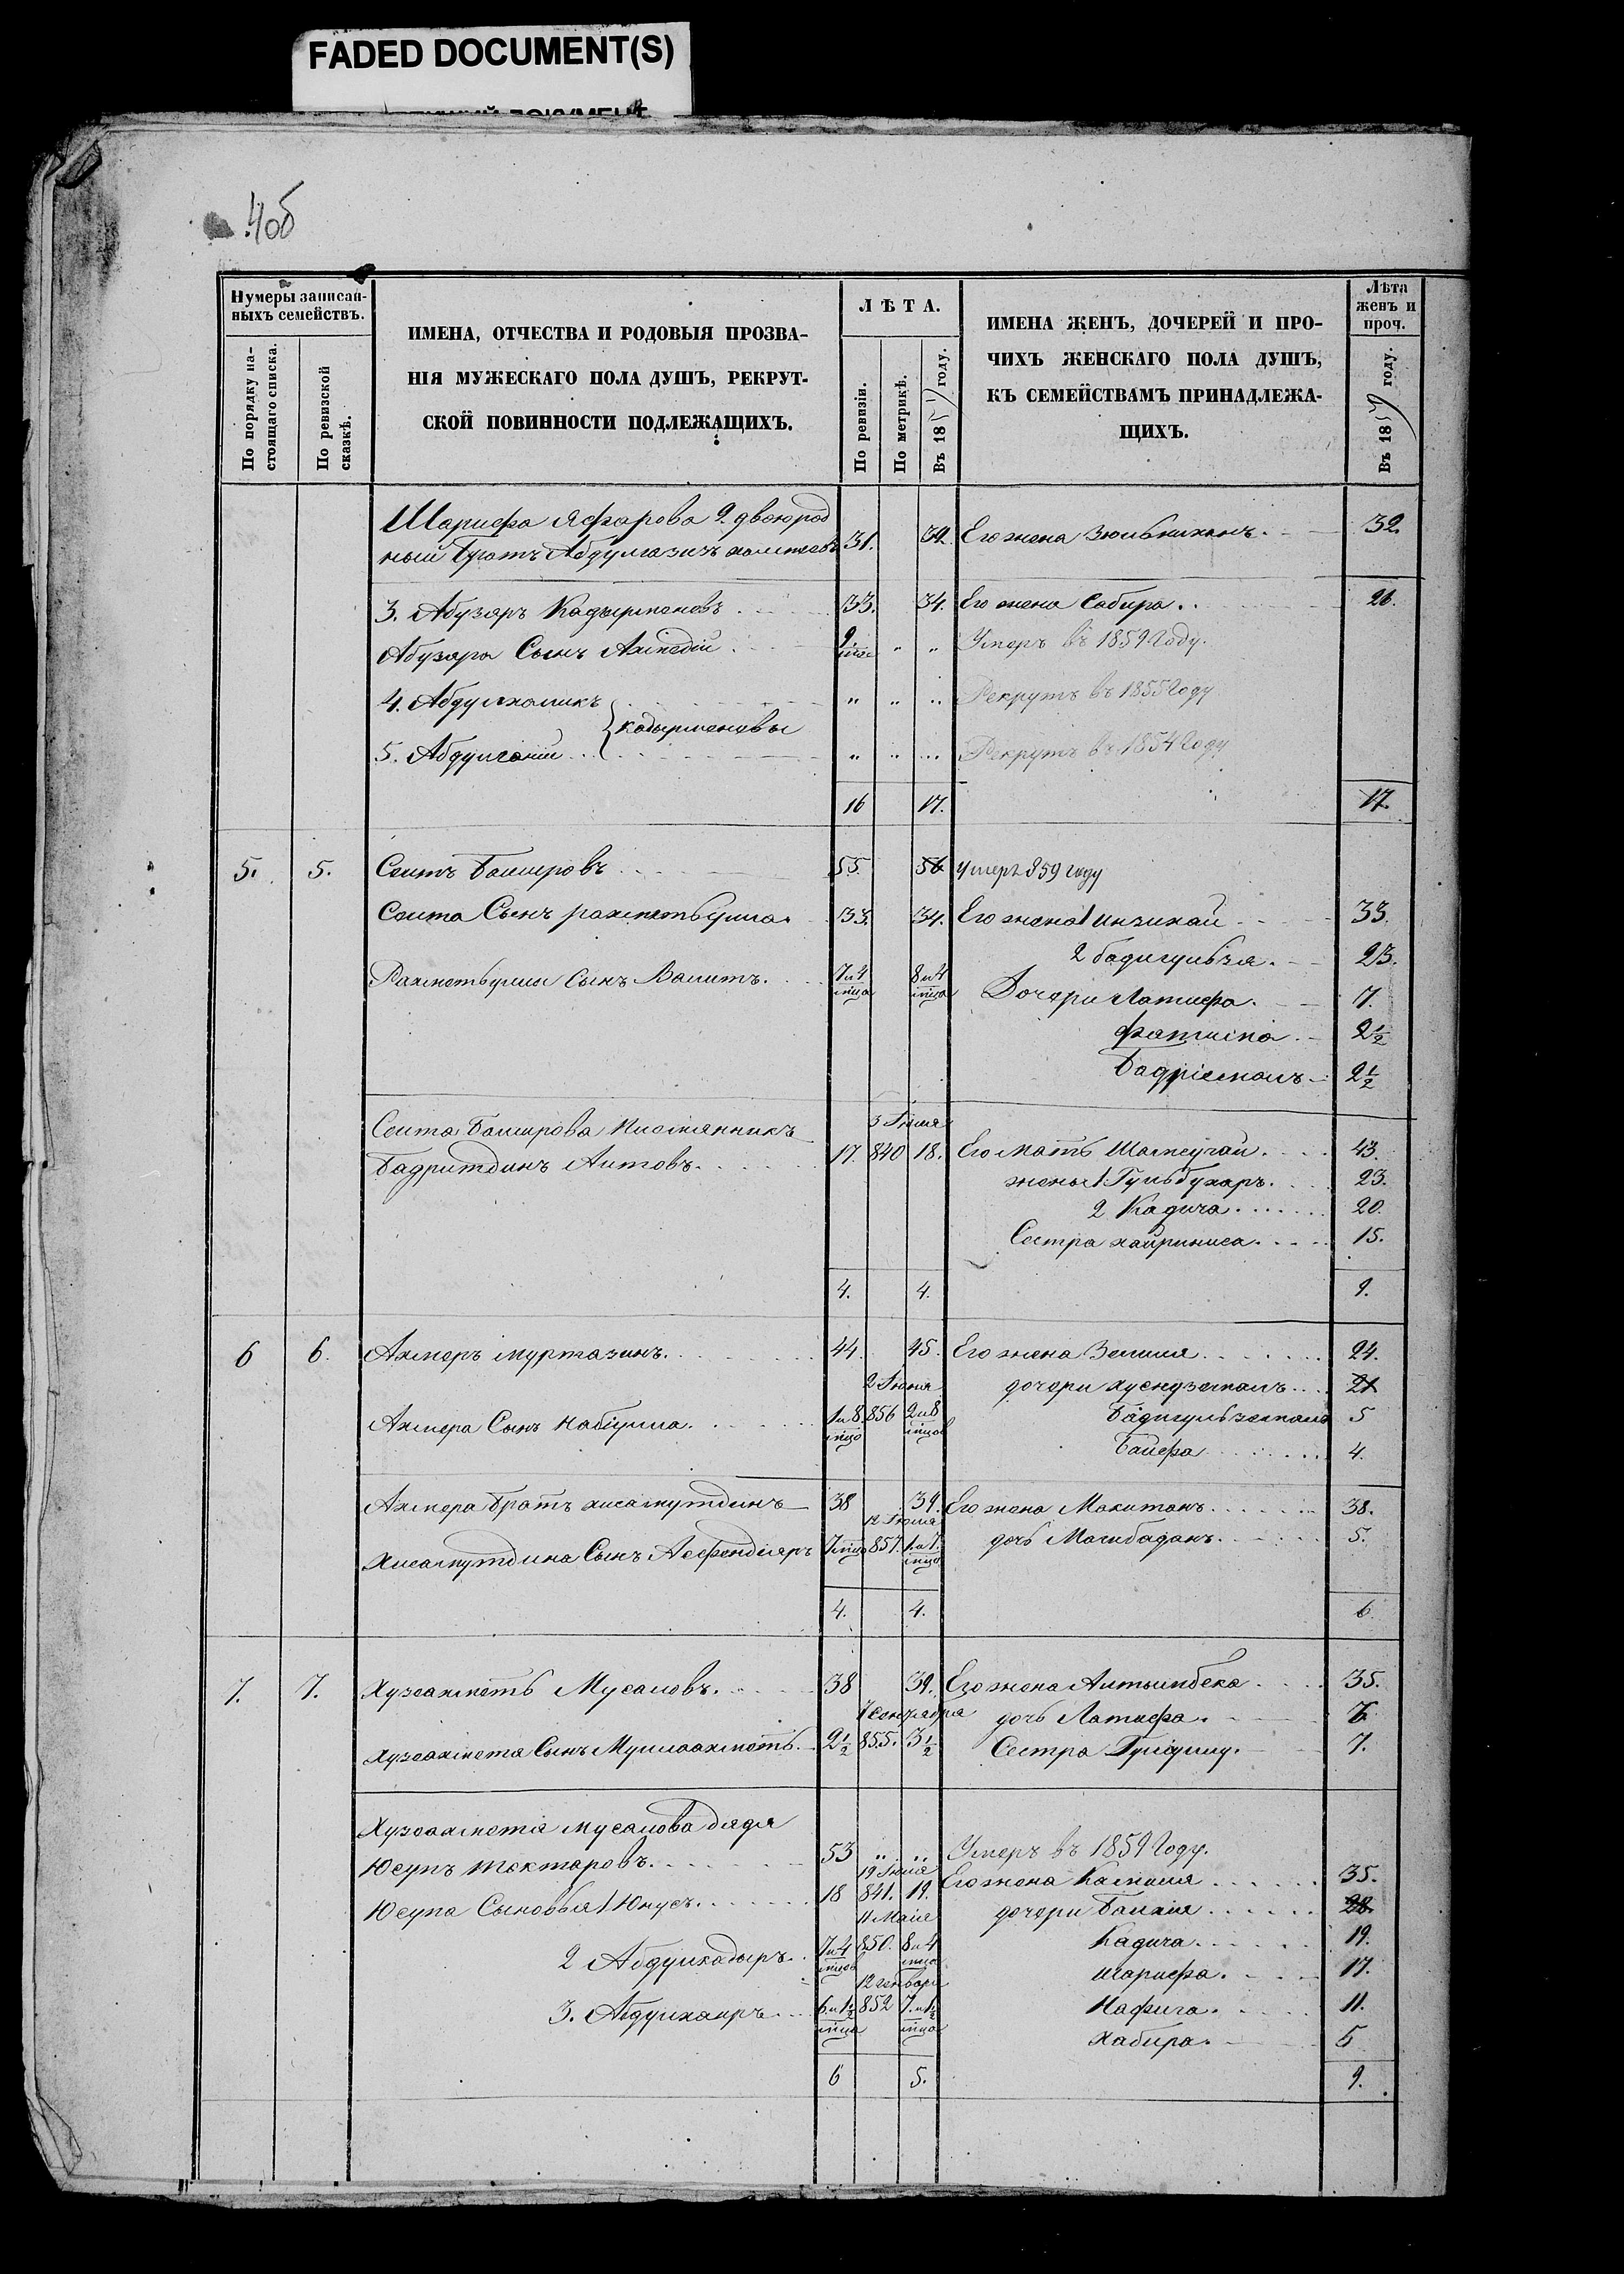 FADED DOCUMENT(S)
40б
Нумеры записан-
ныхъ семействъ.
По порядку на-
стоящаго списка.
По ревизской
сказкѣ.
ИМЕНА, ОТЧЕСТВА И РОДОВЫЯ ПРОЗВА-
НІЯ МУЖЕСКАГО ПОЛА ДУШЪ, РЕКРУТ-
СКОЙ ПОВИННОСТИ ПОДЛЕЖАЩИХЪ.
ЛѢТА.
По ревизіи.
По метрикѣ.
Въ 1859 году.
ИМЕНА ЖЕНЪ, ДОЧЕРЕЙ И ПРО-
ЧИХЪ ЖЕНСКАГО ПОЛА ДУШЪ,
КЪ СЕМЕЙСТВАМЪ ПРИНАДЛЕЖА-
ЩИХЪ.
Лѣта
женъ и
проч.
Въ 1859 году.
Шарифа Яфарова 2. двоюрод
ный Братъ Абдулгазизъ 31. 32. Его жена 32.
3. Абузяръ Кадырменевъ 33. 34. Его жена Сабира 26.
Абузяра Сынъ Ахмедій 9. мцс " " Умеръ въ 1859 Году.
4. Абдулхаликъ " " " Рекрутъ въ 1855 Году
кадырменевы
5. Абдулганій " " " Рекрутъ въ 1854 Году
16 17. 17.
5. 5. Сеитъ Башировъ 55 56 умеръ 859 году
Сеита Сынъ рахметьулла 33. 34. Его жена 1 инзикай 33.
2 бадигульзя. 23.
Рахметьуллы Сынъ Валитъ. 7 и 4 мцса 8 и 4 мцса Дочери Латифа. 7.
фатима 2 1/2
Бадріемалъ 2 1/2
Сеита Баширова Племянникъ 3 Іюля
Бадритдинъ Аитовъ. 17. 840 18. Его мать Шамсучай 43.
жены 1. Гульбухаръ. 23.
2 Кадича 20.
Сестра хайриниса. 15.
4. 4. 9.
6 6. Ахмеръ муртазинъ. 44. 45. Его жена Зелиля 24.
2 Іюня дочери 21
Ахмера Сынъ Набіулла. 1 и 8 мцс 856 2 и 8 мцсов Бадигульземалъ 5
Баифа 4.
Ахмера Братъ хисамутдинъ 38 39. Его жена Макитанъ 38.
12 Іюля
Хисамутдина Сынъ Асфендіяръ 7 мцс 857. 1 и 7. мцса дочь Магибаданъ. 5.
4. 4. 6.
7. 7. Хузеахметь Мусаловъ. 38 39. Его жена Алтынбека 35.
1 Сентября дочь Латифа. 6.
Хузеахметя Сынъ Муллаахметь 2 1/2 855. 3 1/2 Сестра 7.
Хузеахметя мусалова дядя
Юсупъ токтаровъ. 53 " " Умеръ въ 1859 Году.
19 Іюля
Юсупа Сыновья 1 Юнусъ. 18 841. 19. Его жена Камиля 35.
11 Маія дочери Балхія 28.
2 Абдулкадыръ. 7 и 4 мцсов 850. 8 и 4 мцса Кадича 19.
12 января Шарифа. 17.
3. Абдулхаиръ 6 и 1 1/2 мцса 852 7 и 1 1/2 мцса Нафига. 11.
Хабира. 5
6 5. 9.